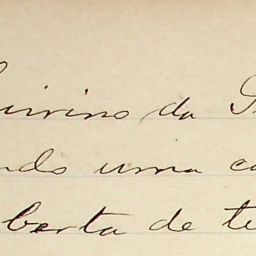 uirino da
ndo uma ca
berta de te